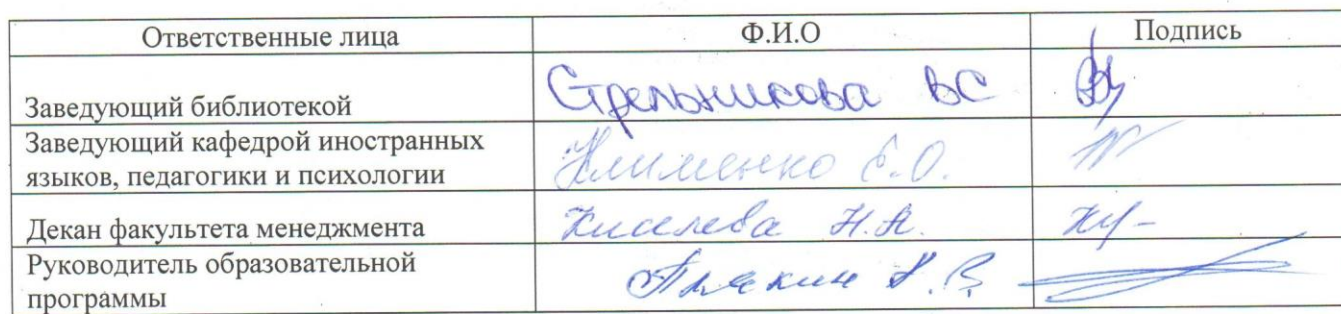 Ответственные лица Ф.И.О Подпись
Заведующий библиотекой Стрельникова ВС
Заведующий кафедрой иностранных
языков, педагогики и психологии Клименко Е.О.
Декан факультета менеджмента Киселева Н.Н.
Руководитель образовательной
программы